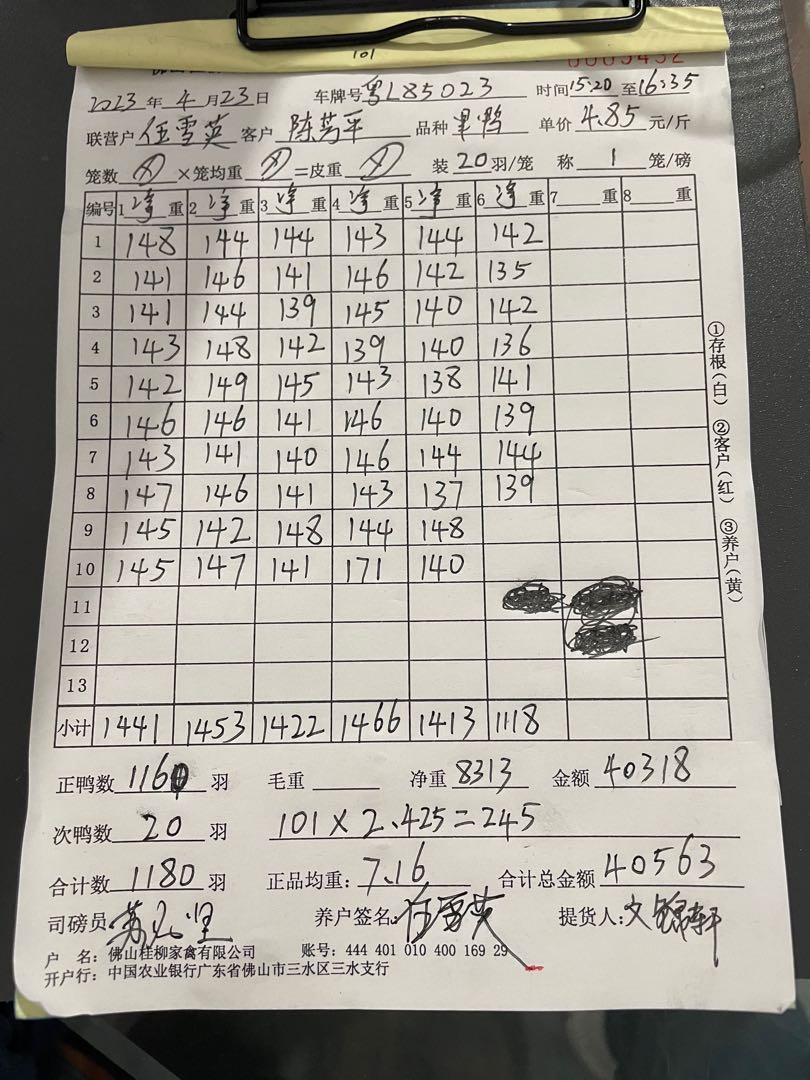 101
0005432
2023年4月23日 车牌号 粤L85023 时间15:20至16:35
联营户 任雪英 客户 陈万平 品种 里鸭 单价 4.85 元/斤
笼数 ×笼均重 =皮重 装 20 羽/笼 称 1 笼/磅
编号 1 净 重 2 净 重 3 净 重 4 净 重 5 净 重 6 净 重 7 重 8 重
1 148 144 144 143 144 142
2 141 146 141 146 142 135
3 141 144 139 145 140 142
4 143 148 142 139 140 136
5 142 149 145 143 138 141
6 146 146 141 146 140 139
7 143 141 140 146 144 144
8 147 146 141 143 137 139
9 145 142 148 144 148
10 145 147 141 171 140
11
12
13
小计 1441 1453 1422 1466 1413 1118
①存根(白) ②客户(红) ③养户(黄)
正鸭数 1160 羽 毛重 净重 8313 金额 40318
次鸭数 20 羽 101×2.425=245
合计数 1180 羽 正品均重: 7.16 合计总金额 40563
司磅员 养户签名: 任雪英 提货人: 文锦轩
户 名: 佛山桂柳家禽有限公司 账号: 444 401 010 400 169 29
开户行: 中国农业银行广东省佛山市三水区三水支行